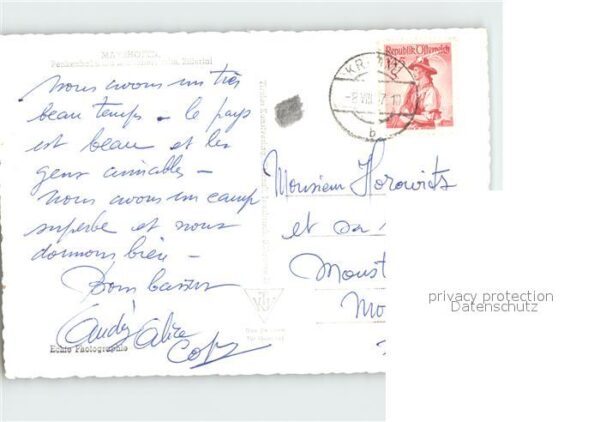 MAYRHOFEN
Nous avons un très
beau temps - le pays
est beau et les
gens aimables -
Nous avons un camp
superbe et nous
dormons bien -
Bons baisers
Echte Photographie
Republik Österreich
-8.VIII.
b
Monsieur Horowitz
et sa
Moust
Mo
privacy protection
Datenschutz